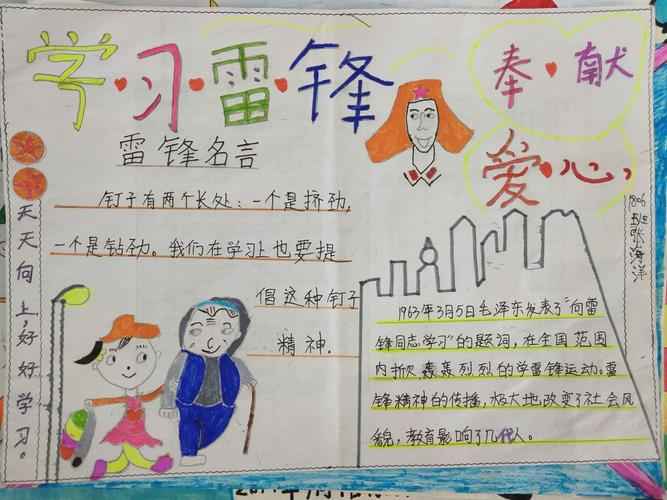 学习雷锋
奉献
爱心
雷锋名言
钉子有两个长处：一个是挤劲，
一个是钻劲。我们在学习上也要提
倡这种钉子
精神.
天天向上，好好学习。
1806班张海洋
1963年3月5日毛泽东发表了“向雷
锋同志学习”的题词，在全国范围
内掀轰轰烈烈的学雷锋运动。雷
锋精神的传播，极大地改变了社会风
貌，教育影响了几代人。